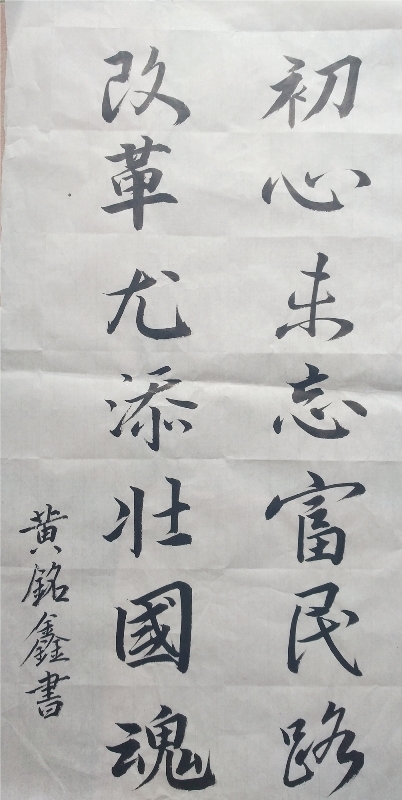 初心未志富民路
改革尤添壮國魂
黄銘鑫書